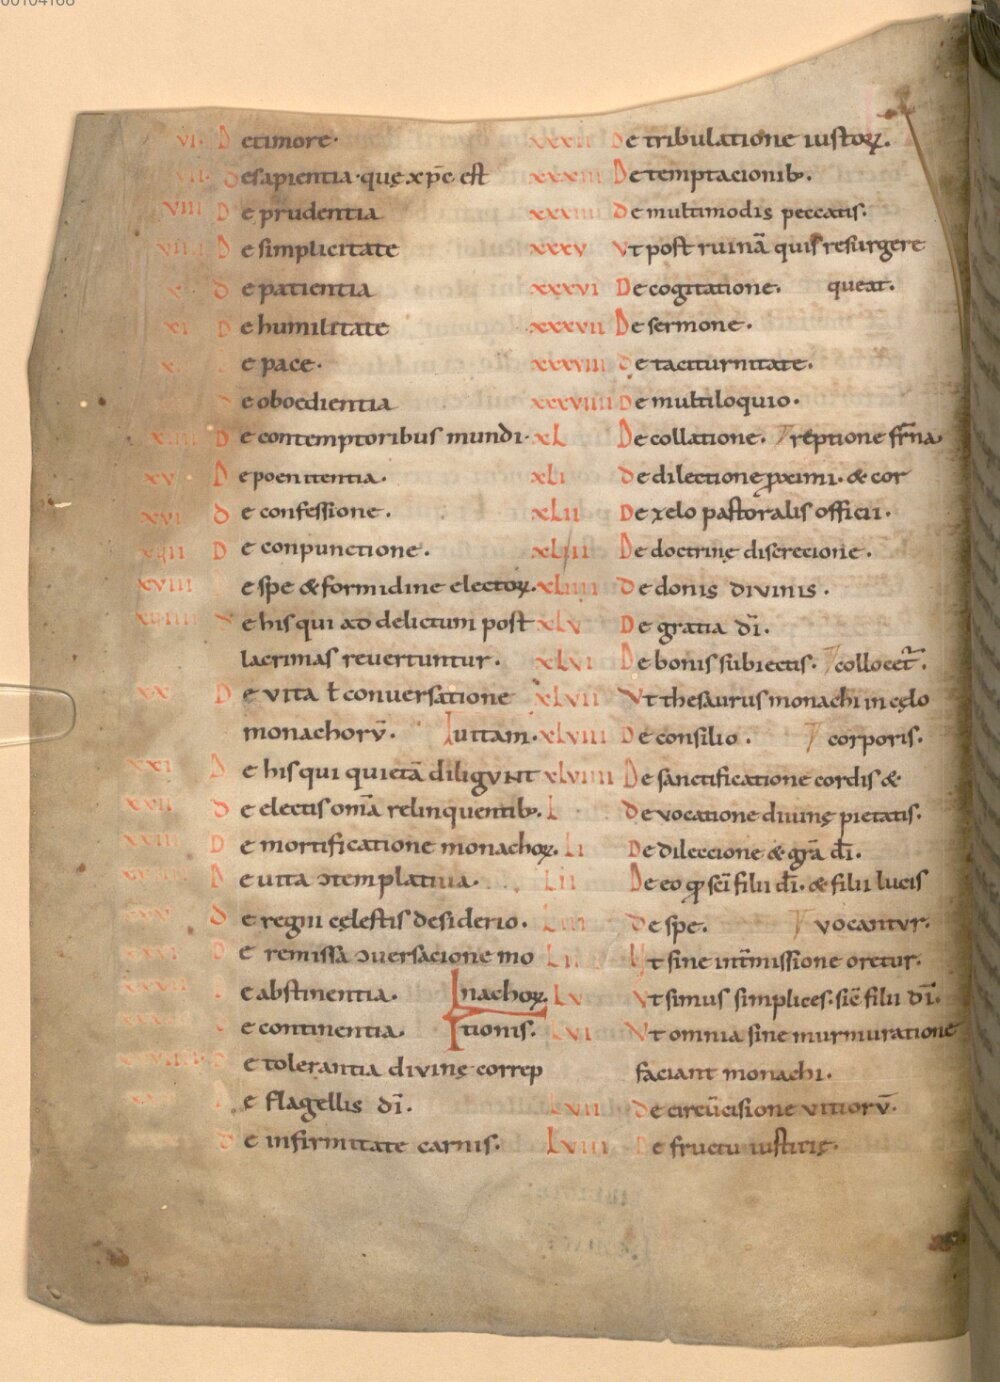 VI. De timore·
VII. De sapientia· quę xp̄c est
VIII De prudentia
VIIII De simplicitate
X De patientia
XI De humilitate
X De pace·
e oboedientia
XIIII De contemptoribus mundi·
XV De poenitentia.
XVI De confessione.
XVII De conpunctione.
XVIII e spe & formidine electoꝝ.
XVIIII De his qui ad delictum post
lacrimas reuertuntur.
XX De vita ł conuersatione
monachorū. Iuitam.
XXI De his qui quietā diligunt
XXII De electis om̅a relinquentib;.
XXIII De mortificatione monachoꝝ.
De uita ↄtemplatiua.
De regni cęlestis desiderio.
XXVI De remissa ↄuersacione mo
XXVII e abstinentia. nachoꝝ.
e continentia. tionis.
e tolerantia divinę correp
e flagellis dī.
De infirmitate carnis.
XXXII De tribulatione iustoꝝ.
XXXIII De temptacionib;.
XXXIIII De multimodis peccatis.
XXXV Vt post ruinā quis resurgere
XXXVI De cogitatione. queat.
XXXVII De sermone.
XXXVIII De taciturnitate.
XXXVIIII De multiloquio.
XL De collatione. reptione fr̄na
XLI De dilectione proximi. & cor
XLII De zelo pastoralis officii.
XLIII De doctrinę discrecione.
XLIIII De donis divinis.
XLV De gratia dī.
XLVI De bonis subiectis. collocet̄.
XLVII Vt thesaurus monachi in cęlo
XLVIII De consilio. corporis.
XLVIIII De sanctificatione cordis &
L De vocatione diuinę pietatis.
LI De dileccione & gr̄a dī.
LII De eo qd̄ sc̄i filii dī. & filii lucis
LIII De spe. vocantur.
LIIII Vt sine int̄missione oretur.
LV Vt simus simplices. sic̄ filii dī.
LVI Vt omnia sine murmuratione
faciant monachi.
LVII De circūcisione vitiorū.
LVIII De fructu iustitię.